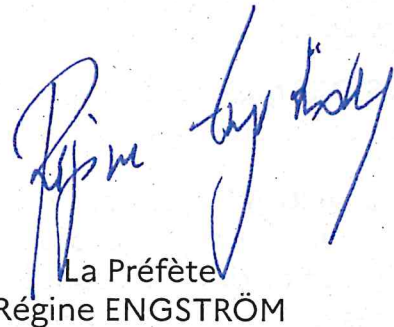 Régine Engström
La Préfète
Régine ENGSTRÖM